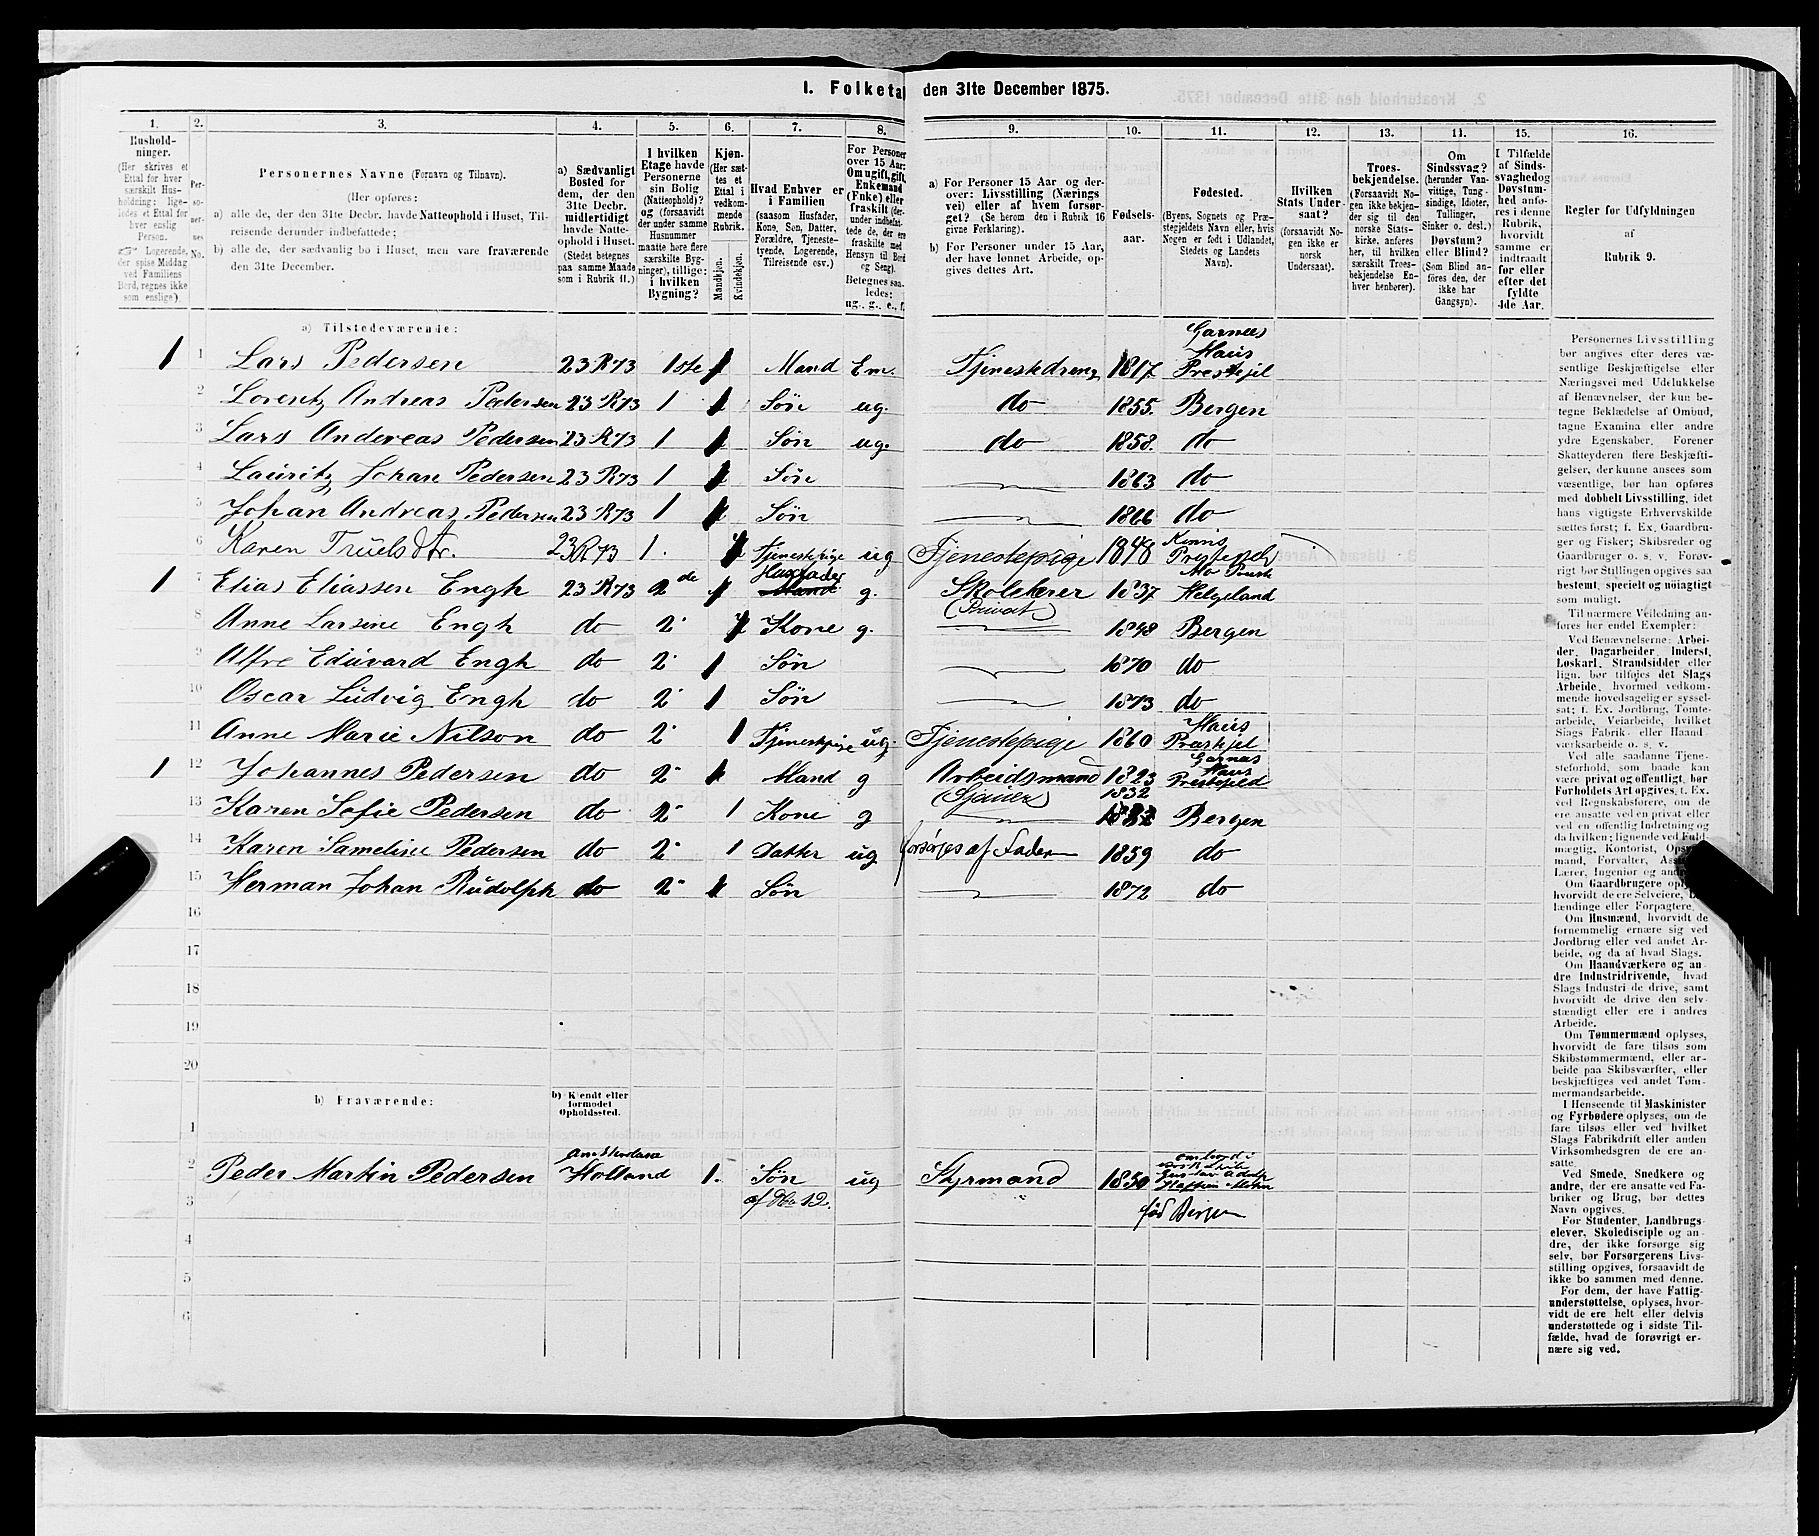 1. Folketal den 31te December 1875.
1. 2. 3. 4. 5. 6. 7. 8. 9. 10. 11. 12. 13. 14. 15. 16.
Husholdninger.
(Her skrives et
Ettal for hver
særskilt Husholdning;
ligeledes et Ettal for
hver enslig
Person.
Logerende,
der spise Middag
ved Familiens
Bord, regnes ikke
som enslige).
Personernes No.
Personernes Navne (Fornavn og Tilnavn).
(Her opføres:
a) alle de, der den 31te Decbr. havde Natteophold i Huset, Tilreisende derunder indbefattede;
b) alle de, der sædvanlig bo i Huset, men vare fraværende
den 31te December.
a) Sædvanligt
Bosted for
dem, der den
31te Decbr.
midlertidigt
havde Natteophold
i Huset.
(Stedet betegnes
paa samme Maade
som i Rubrik 11.)
I hvilken
Etage havde
Personerne
sin Bolig
(Natteophold)?
og (forsaavidt
der under samme
Husnummer
maatte høre flere
særskilte Bygninger),
tillige:
i hvilken
Bygning?
Kjøn.
(Her sættes
et
Ettal i
vedkommende
Rubrik.
Mandkjøn.
Kvindekjøn.
Hvad Enhver er
i Familien
(saasom Husfader,
Kone, Søn, Datter,
Forældre, Tjenestetyende,
Logerende,
Tilreisende osv.)
For Personer
over 15 Aar:
Om ugift, gift,
Enkemand
(Fnke) eller
fraskilt
Betegnes saaledes:
ug., g., e., f.
a) For Personer 15 Aar og derover:
Livsstilling (Næringsvei)
eller af hvem forsørget?
(Se herom den i Rubrik 16
givne Forklaring).
b) For Personer under 15 Aar,
der have lønnet Arbeide, opgives
dettes Art.
Fødselsaar.
Fødested.
(Byens, Sognets og Præstegjeldets
Navn eller, hvis
Nogen er født i Udlandet,
Stedets og Landets
Navn).
Hvilken
Stats Undersaat?
(forsaavidt Nogen
ikke er
norsk
Undersaat).
Troesbekjendelse.
(Forsaavidt Nogen
ikke bekjender
sig til den
norske Statskirke,
anføres
her, til hvilken
særskilt Troesbekjendelse
Enhver
henhører).
Om
Sindssvag?
(herunder Vanvittige,
Tungsindige,
Idioter,
Tullinger,
Sinker o. desl.)
Døvstum?
eller Blind?
(Som Blind anføres
den, der
ikke har
Gangsyn).
I Tilfælde
af Sindssvaghed
og
Døvstumhed
anføres
i denne
Rubrik,
hvorvidt
samme er
indtraadt
før eller
efter det
fyldte
4de Aar.
Regler for Udfyldningen
af
Rubrik 9.
a) Tilstedeværende:
1 1 Lars Pedersen 23 R73 1ste 1 Mand Em. Tjenestedreng 1817. Garnes Haus Prestejil
2 Lorentz Andreas Pedersen 23 R73 1 1 Søn ug. do 1855. Bergen
3 Lars Andreas Pedersen 23 R73 1 1 Søn ug. do 1858. do
4 Lauritz Johan Pedersen 23 R73 1 1 Søn 1863 do
5 Johan Andreas Pedersen 23 R73 1 1 Søn 1866 do
6 Karen Truelsdtr. 23 R73 1. Tjenestepige ug Tjenestepige 1848 Kinns
1 7 Elias Eliassen Engh 23 R73 2de 1 Husfader Mand g. Skolelærer (Privat) 1837 Mo Helgeland
8 Anne Larsine Engh do 2 Kone g. 1848 Bergen
9 Alfre Eduvard Engh do 2 1 Søn 1870 do
10 Oscar Ludvig Engh do 2 1 Søn 1873 do
11 Anne Marie Nilson do 2 1 Tjenestpige ug. Tjenestepige 1860 Haus Præstejil
1 12 Johannes Pedersen do 2 1 Mand g Arbeidsmand (Sjauer) 1823 Garnæs Haus Prestejeld
13 Karen Sofie Pedersen do 2 1 Kone g 1832 Bergen
14 Karen Sameline Pedersen do 2 1 Datter ug forsørges af Faderen 1859 do
15 Herman Johan Rudolph do 2 1 Søn 1872 do
16
17
18
19
20
b) Fraværende: b) Kjendt eller formodet Opholdssted.
1
2 Peder Martin Pedersen Amsterdam Holland 1. Søn af No 12. ug Styrmand 1850 ombord i Skib Gustav Adolf
3 født Bergen
4
5
6
Personernes Livsstilling
bør angives efter deres væsentlige
Beskjæftigelse eller
Næringsvei med Udelukkelse
af Benævnelser, der kun betegne
Beklædelse af Ombud,
tagne Examina eller andre
ydre Egenskaber. Forener
Skatteyderen flere Beskjæftigelser,
der kunne ansees som
væsentlige, bør han opføres
med dobbelt Livsstilling, idet
hans vigtigste Erhvervskilde
sættes først; f. Ex. Gaardbruger
og Fisker; Skibsreder og
Gaardbruger o. s. v. Forøvrigt
bør Stillingen opgives saa
bestemt, specielt og nøiagtigt
som muligt.
Til nærmere Veiledning anføres
her endel Exempler:
Ved Benævnelserne: Arbeider,
Dagarbeider, Inderst,
Løskarl, Strandsidder eller
lign. bør tilføies det Slags
Arbeide, hvormed vedkommende
hovedsageligt er sysselsat;
f. Ex. Jordbrug, Tomtearbeide,
Veiarbeide, hvilket
Slags Fabrik- eller Haandværksarbeide
o. s. v.
Ved alle saadanne Tjenesteforhold,
som baade kan
være privat og offentligt, bør
Forholdets Art opgives, f. Ex.
ved Regnskabsførere, om de
ere ansatte ved en privat eller
ved en offentlig Indretning og
da hvilken; lignende ved Fuldmægtig,
Kontorist,
mand, Forvalter,
Lærer, Ingeniør og
Om Gaardbrugere
hvorvidt de ere Selveiere,
lændinge eller Forpagtere.
Om Husmænd, hvorvidt de
fornemmelig ernære sig ved
Jordbrug eller ved andet Arbeide,
og da af hvad Slags.
Om Haandværkere og andre
Industridrivende, hvad
Slags Industri de drive, samt
hvorvidt de drive den selvstændigt
eller ere i andres
Arbeide.
Om Tømmermænd oplyses,
hvorvidt de fare tilsøs som
Skibstømmermænd, eller arbeide
paa Skibsværfter, eller
beskjæftiges ved andet Tømmermandsarbeide.
I Henseende til Maskinister
og Fyrbødere oplyses, om de
fare tilsøs eller ved hvilket
Slags Fabrikdrift eller anden
Virksomhedsgren de ere ansatte.
Ved Smede, Snedkere og
andre, der ere ansatte ved Fabriker
og Brug, bør dettes
Navn opgives.
For Studenter, Landbrugselever,
Skoledisciple og andre,
der ikke forsørge sig
selv, bør Forsørgerens Livsstilling
opgives, forsaavidt de
ikke bo sammen med denne.
For dem, der have Fattigunderstøttelse,
oplyses, hvorvidt
de ere helt eller delvis
understøttede og i sidste Tilfælde,
hvad de forøvrigt ernære
sig ved.